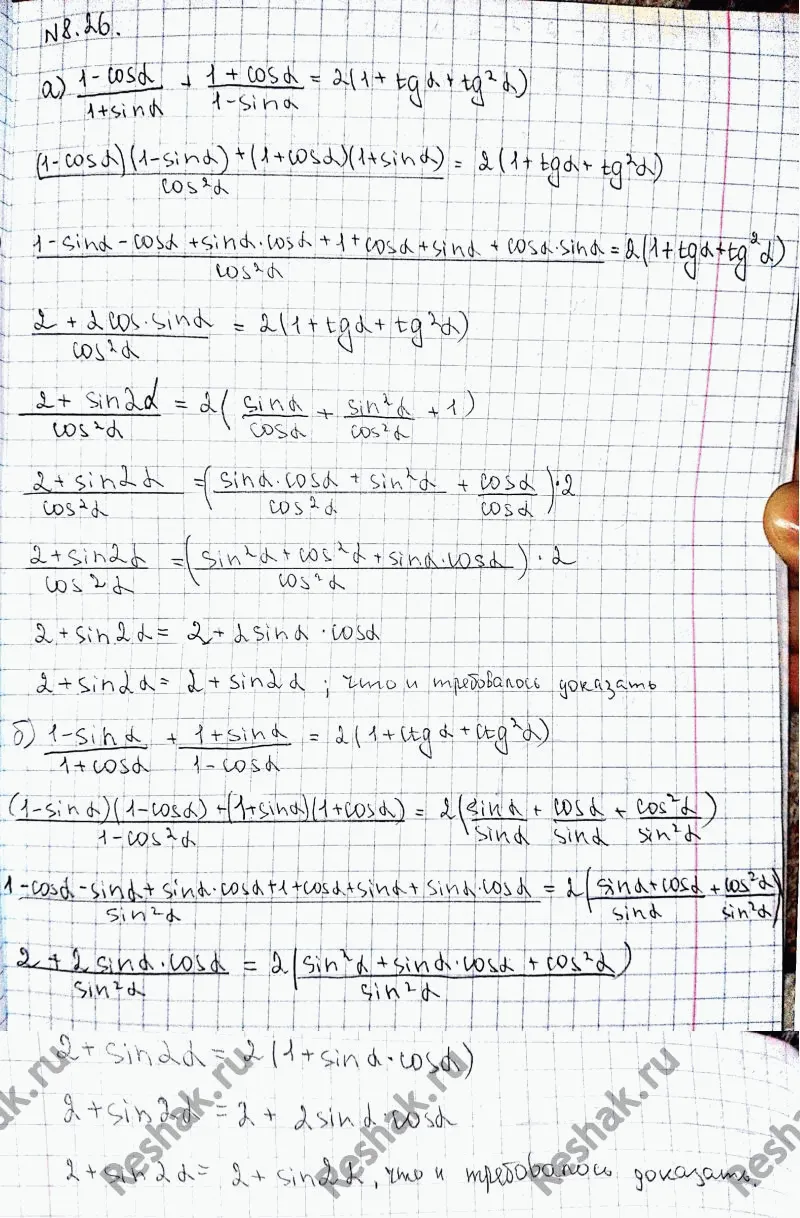 №8.26.
а) (1-cosα)/(1+sinα) + (1+cosα)/(1-sinα) = 2(1+tgα+tg²α)
((1-cosα)(1-sinα)+(1+cosα)(1+sinα))/cos²α = 2(1+tgα+tg²α)
(1-sinα-cosα+sinα·cosα+1+cosα+sinα+cosα·sinα)/cos²α = 2(1+tgα+tg²α)
(2+2cos·sinα)/cos²α = 2(1+tgα+tg²α)
(2+sin2α)/cos²α = 2(sinα/cosα + sin²α/cos²α + 1)
(2+sin2α)/cos²α = ((sinα·cosα+sin²α)/cos²α + cosα/cosα)·2
(2+sin2α)/cos²α = ((sin²α+cos²α+sinα·cosα)/cos²α)·2
2+sin2α = 2+2sinα·cosα
2+sin2α = 2+sin2α ; что и требовалось доказать
б) (1-sinα)/(1+cosα) + (1+sinα)/(1-cosα) = 2(1+ctgα+ctg²α)
((1-sinα)(1-cosα)+(1+sinα)(1+cosα))/(1-cos²α) = 2(sinα/sinα + cosα/sinα + cos²α/sin²α)
(1-cosα-sinα+sinα·cosα+1+cosα+sinα+sinα·cosα)/sin²α = 2((sinα+cosα)/sinα + cos²α/sin²α)
(2+2sinα·cosα)/sin²α = 2((sin²α+sinα·cosα+cos²α)/sin²α)
2+sin2α = 2(1+sinα·cosα)
2+sin2α = 2+2sinα·cosα
2+sin2α = 2+sin2α, что и требовалось доказать.
ak.ru
Reshak.ru
Reshak.ru
Reshak.ru
Resh